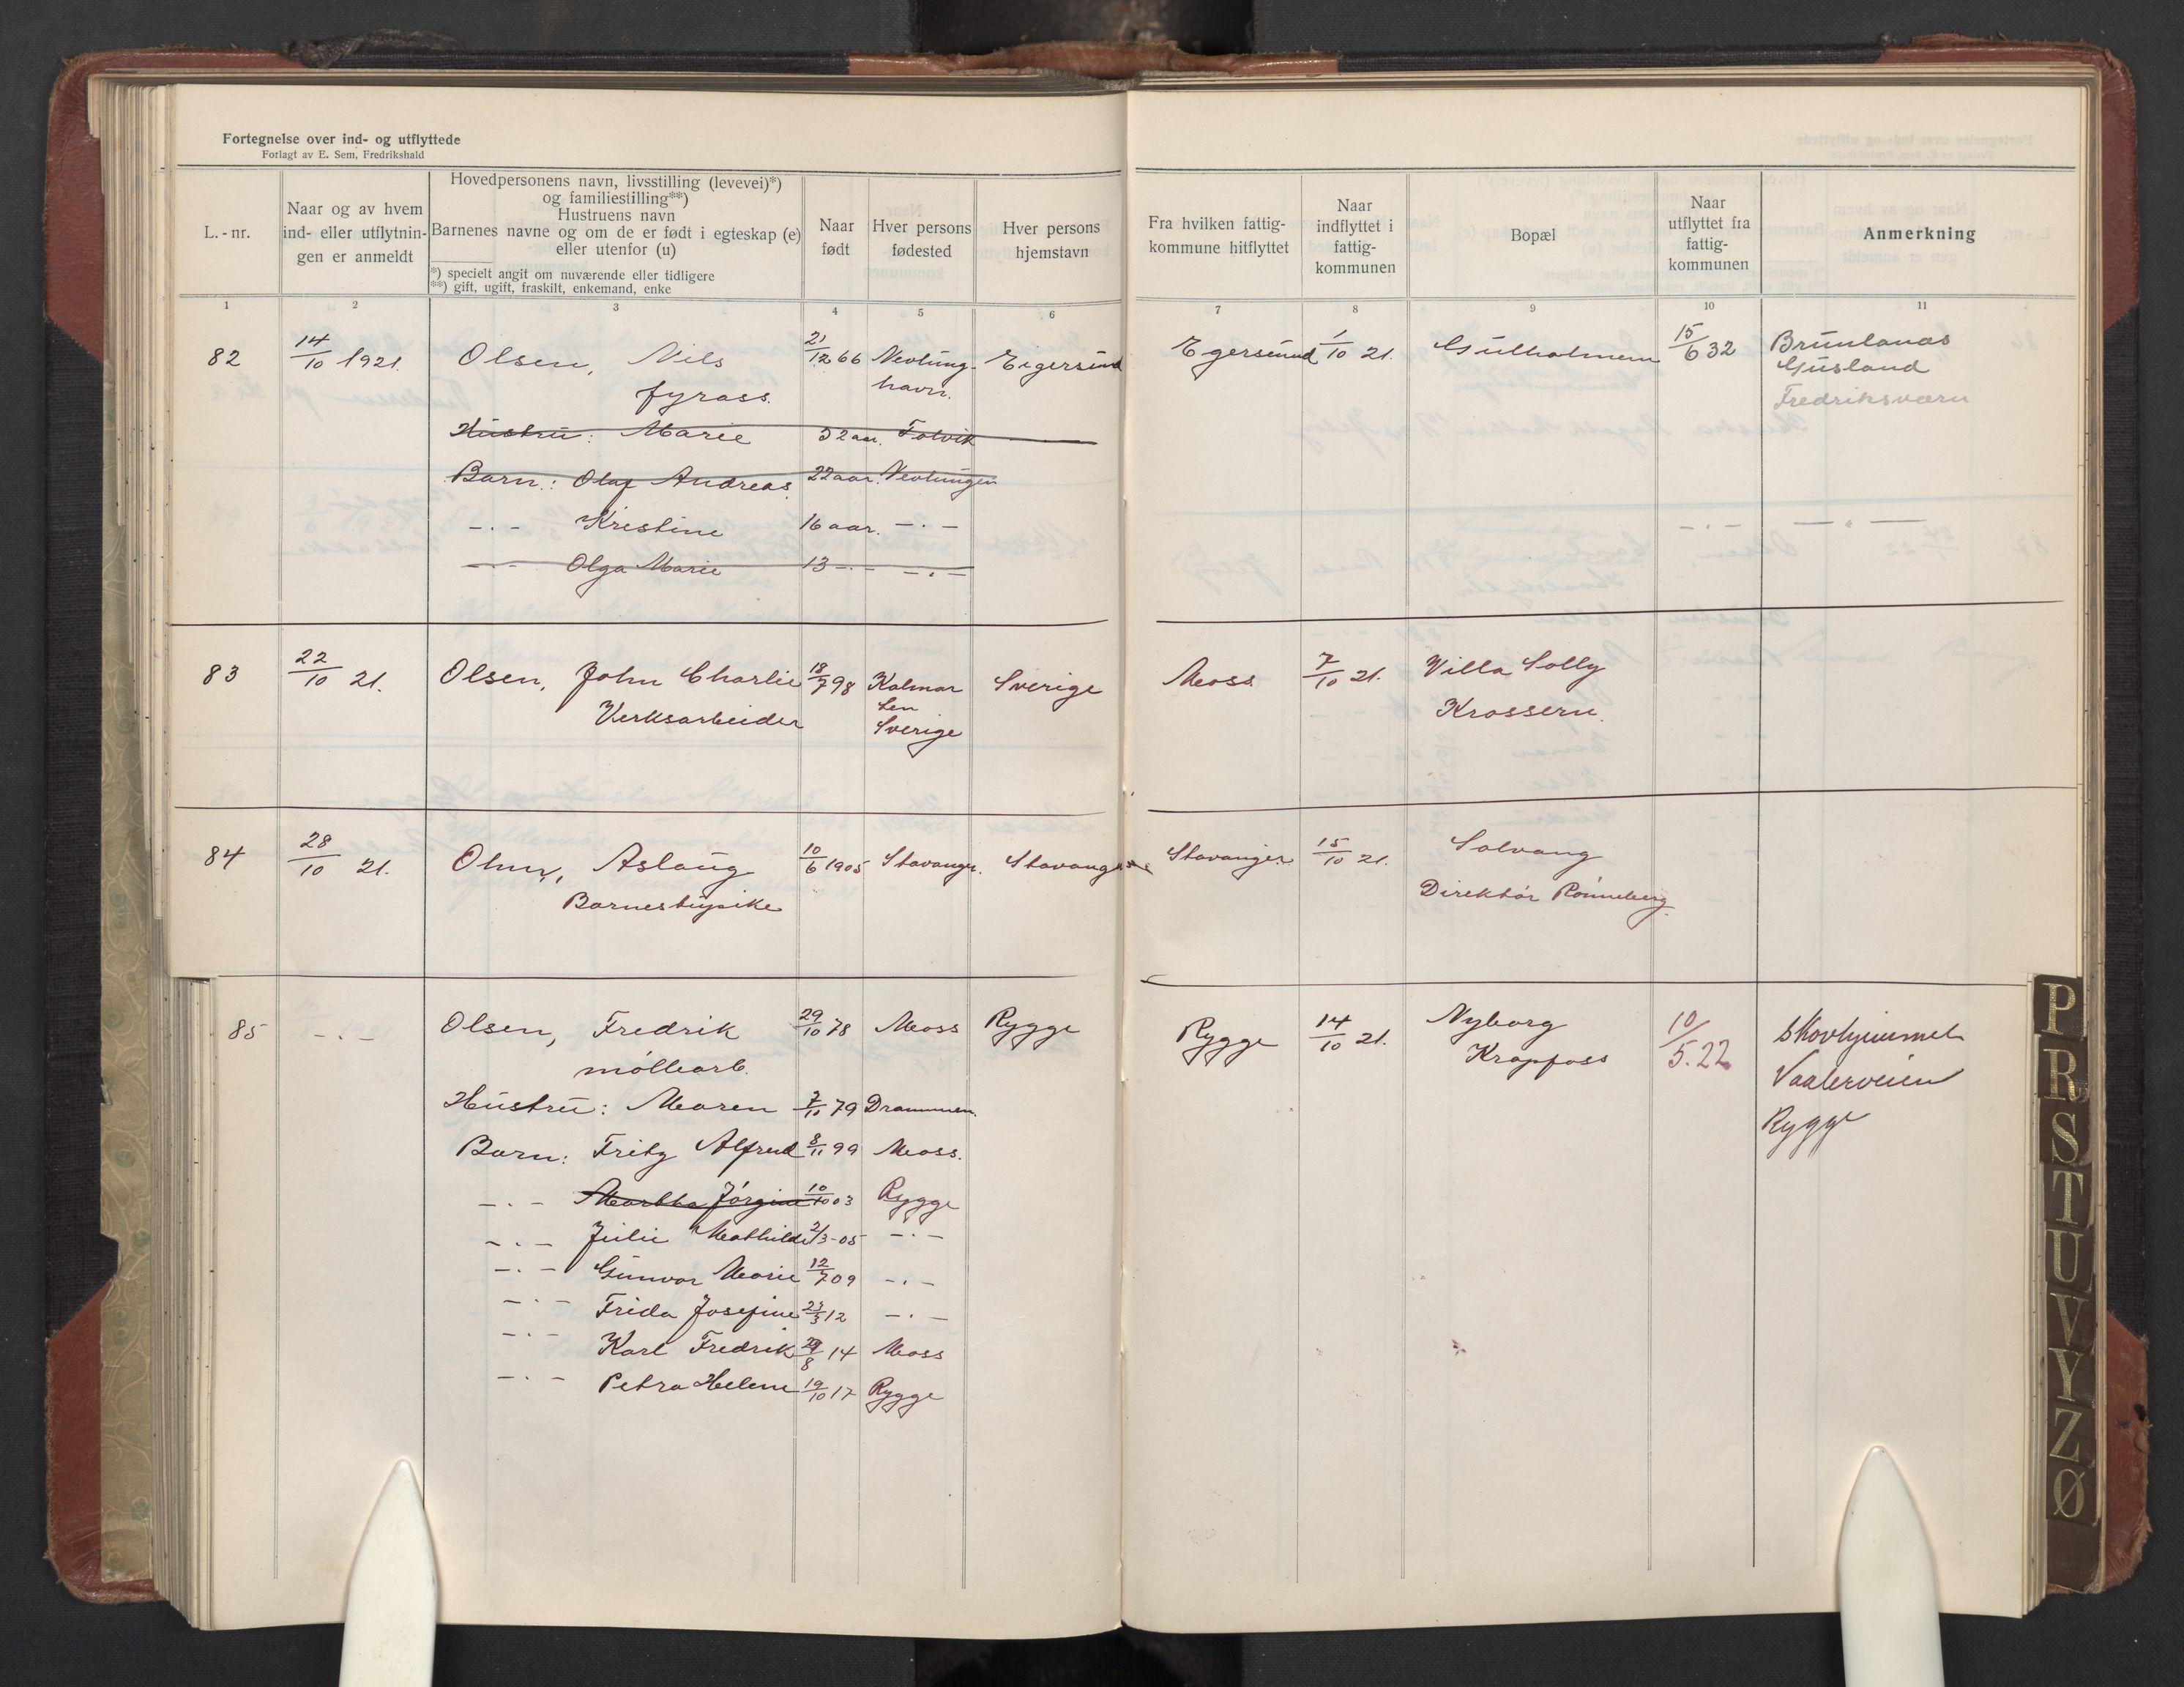 Fortegnelse over ind- og utflyttede
Forlagt av E. Sem, Fredrikshald
L.-nr.
Naar og av hvem
ind- eller utflytnin-
gen er anmeldt
Hovedpersonens navn, livsstilling (levevei)*)
og familiestilling**)
Hustruens navn
Barnenes navne og om de er født i egteskap (e)
eller utenfor (u)
*) specielt angit om nuværende eller tidligere
**) gift, ugift, fraskilt, enkemand, enke
Naar
født
Hver persons
fødested
Hver persons
hjemstavn
Fra hvilken fattig-
kommune hitflyttet
Naar
indflyttet i
fattig-
kommunen
Bopæl
Naar
utflyttet fra
fattig-
kommunen
Anmerkning
1 2 3 4 5 6 7 8 9 10 11
82 14/10 1921. Olsen, Nils 21/12 66 Nevlung- Eigersund Egersund 1/10 21. Gulholmen 15/6 32 Brunlanas
fyrass. havn. Gusland
Fredriksværn
Hustru: Marie 52 aar. Tolvik
Barn: Olaf Andreas. 22 aar. Nevlungen
-.- Kristine 16 aar. -.- -.- -.-
-.- Olga Marie 13 -.- -.-
83 22/10 21. Olsen, John Charlie 18/7 98 Kalmar Sverige Moss. 7/10 21. Villa Solly
Verksarbeider Len Krossern.
Sverige
84 28/10 21. Olsen, Aslaug 10/6 1905 Stavanger. Stavanger Stavanger 15/10 21. Solvang
Barnestupike Direktør Rønneberg.
85 -.- Olsen, Fredrik 29/10 78 Moss Rygge Rygge 14/10 21. Nyborg 10/5.22 Skovhjemmet
møllearb. Krapfoss Vaalerveien
Rygge
Hustru: Maren 7/11 79 Drammen.
Barn: Fritz Alfred 8/11 99 Moss.
-.- Martha Jørgine 10/10 03 Rygge
-.- Julie Mathilde 2/3-05 -.-
-.- Gunvor Marie 12/7 09 -.-
-.- Frida Josefine 23/3 12 -.-
-.- Karl Fredrik 29/8 14 Moss
-.- Petra Helene 19/10 17 Rygge
P
R
S
T
U
V
Y
Z
Ø